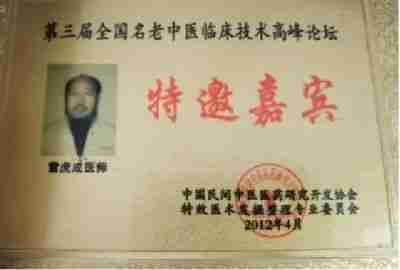 第三届全国名老中医临床技术高峰论坛
特邀嘉宾
雷虎成医师
中国民间中医医药研究开发协会
特效医术发掘整理专业委员会
2012年4月